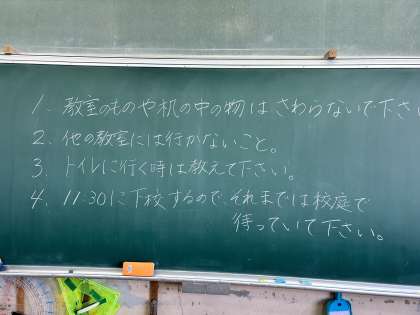 1. 教室のものや机の中の物はさわらないで下さい
2. 他の教室には行かないこと。
3. トイレに行く時は教えて下さい。
4. 11:30に下校するので、それまでは校庭で
待っていて下さい。